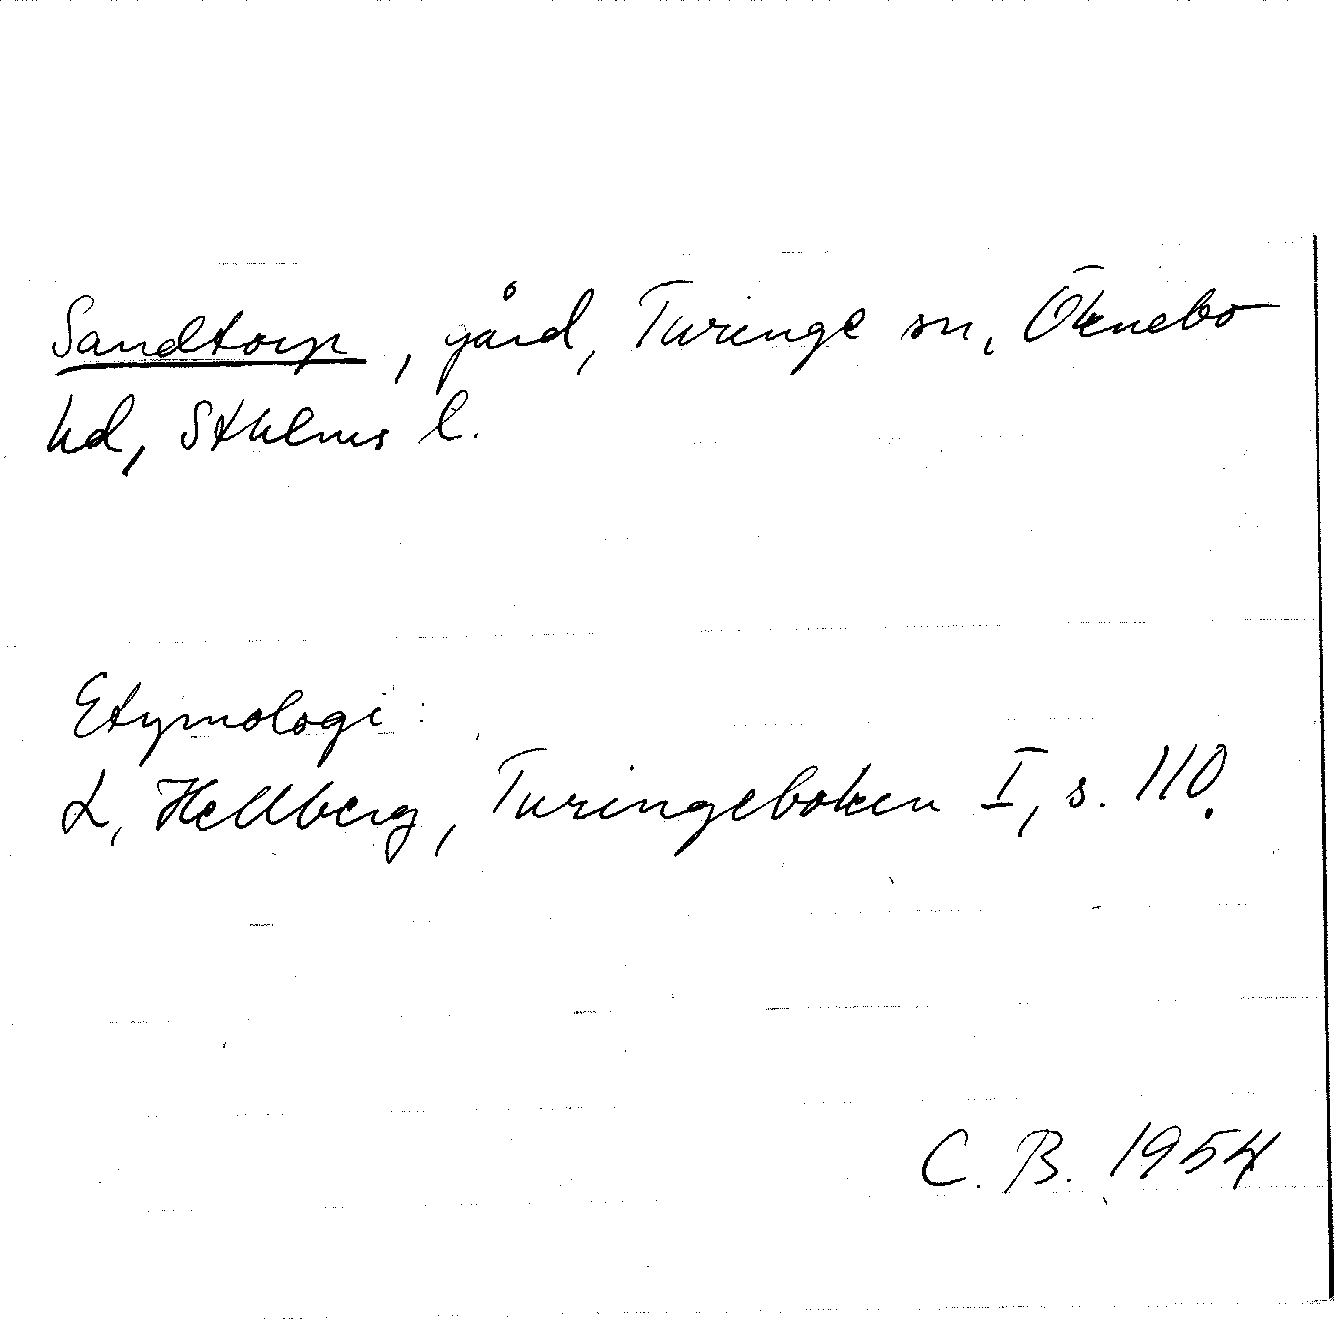 Sandtorp, gård, Turinge sn, Öknebo
hd, Sthlms l.
Etymologi:
L. Hellberg, Turingeboken I, s. 110.
C. B. 1954